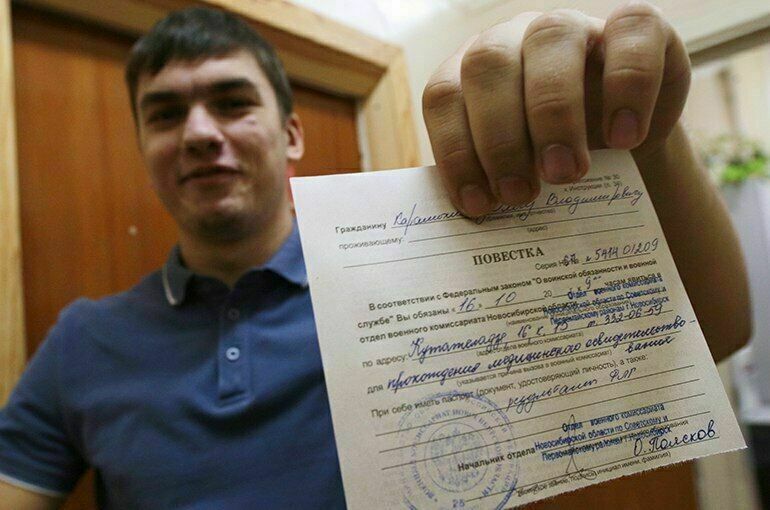 Приложение № 30
к Инструкции (п. 34)
Гражданину Владимировичу
(фамилия, имя, отчество)
проживающему:
(адрес)
ПОВЕСТКА
Серия НО № 5414 01209
В соответствии с Федеральным законом "О воинской обязанности и военной
службе" Вы обязаны "16" 10 20 к "9" часам явиться в
отдел военного комиссариата Новосибирской области
Отдел военного комиссариата
Новосибирской области по Советскому и
Первомайскому районам г.Новосибирск
по адресу: Кутателадзе 16 к. 15 т. 332-06-59
(адрес отдела военного комиссариата)
для прохождения медицинского освидетельство-
вания
(указывается причина вызова в военный комиссариат)
При себе иметь паспорт (документ, удостоверяющий личность), а также:
результат ФЛГ
Отдел военного комиссариата
Новосибирской области по Советскому и
Первомайскому районам г.Новосибирск
Начальник отдела О. Поляков
(воинское звание, подпись, инициал имени, фамилия)